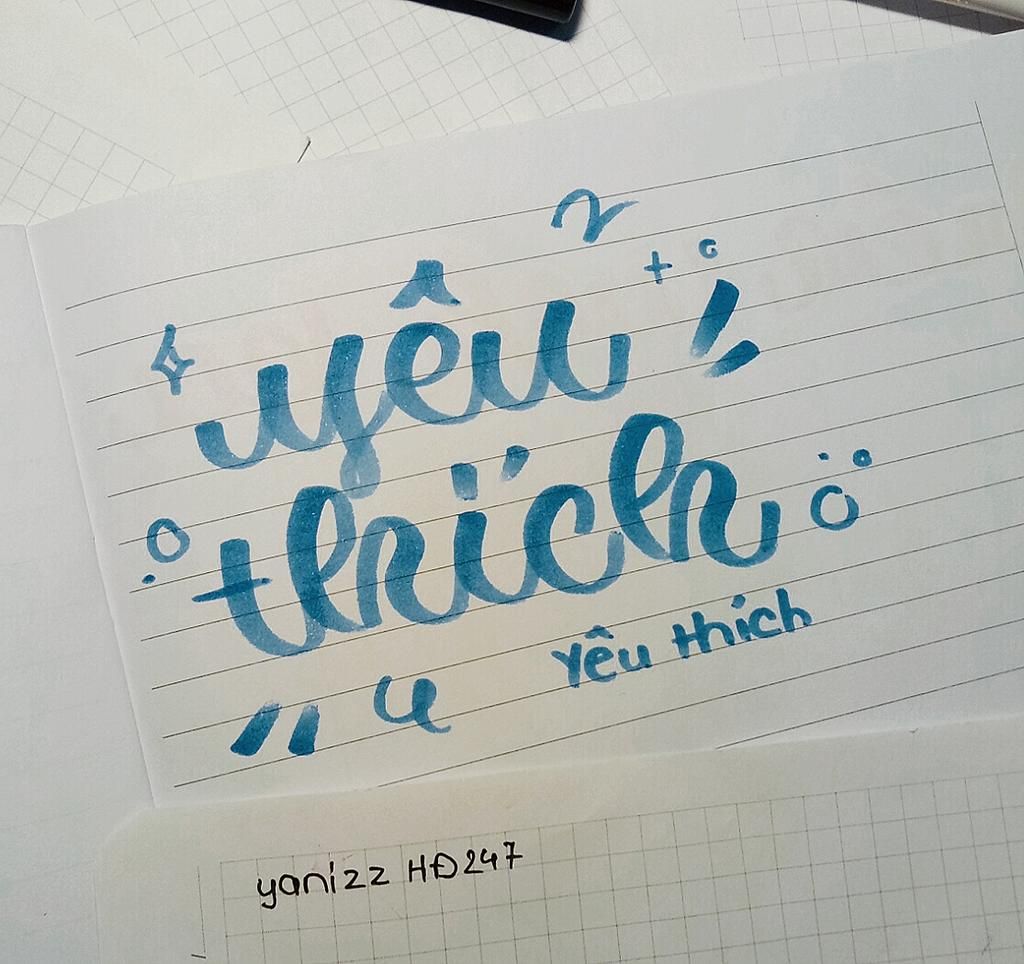 yêu
thích
Yêu thích
yanizz HĐ247